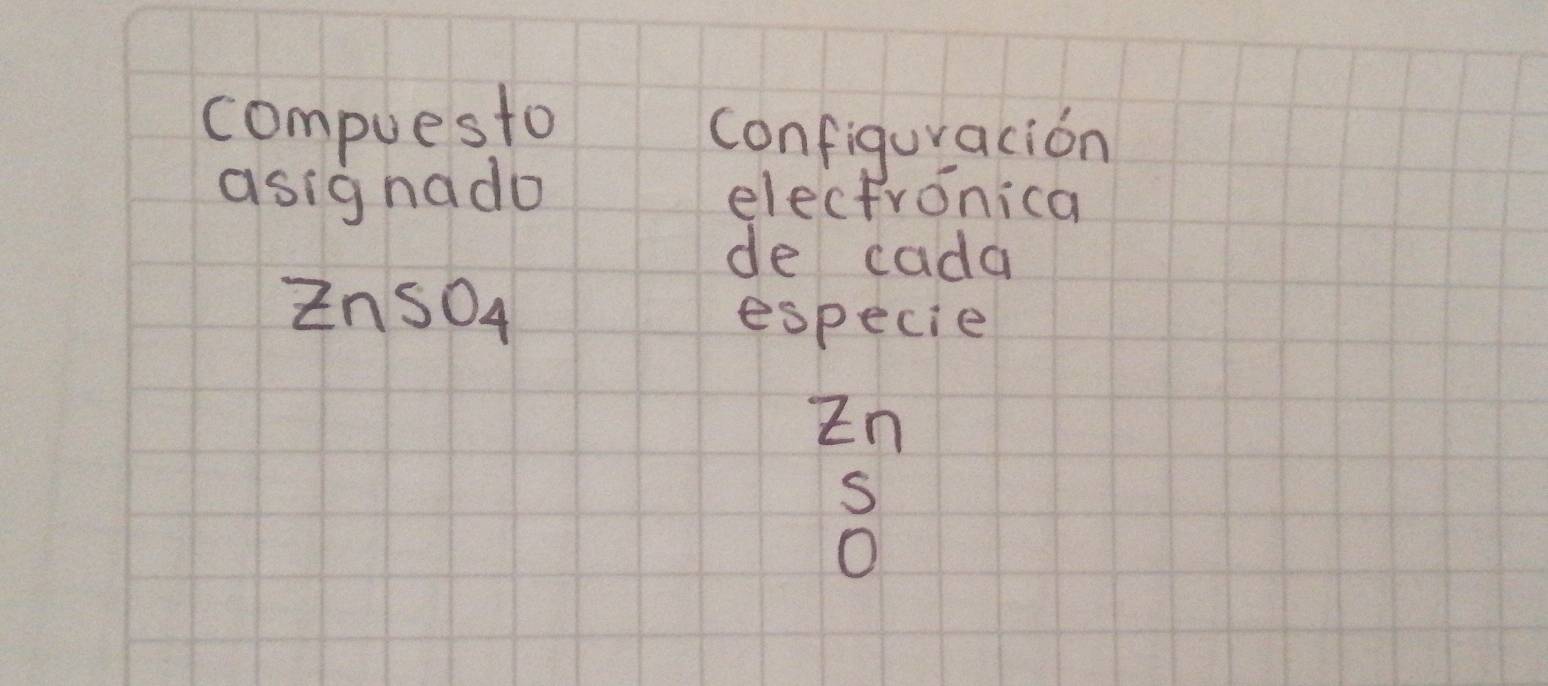 compuesto
asignado
ZnSO₄
Configuración
electrónica
de cada
especie
Zn
S
O